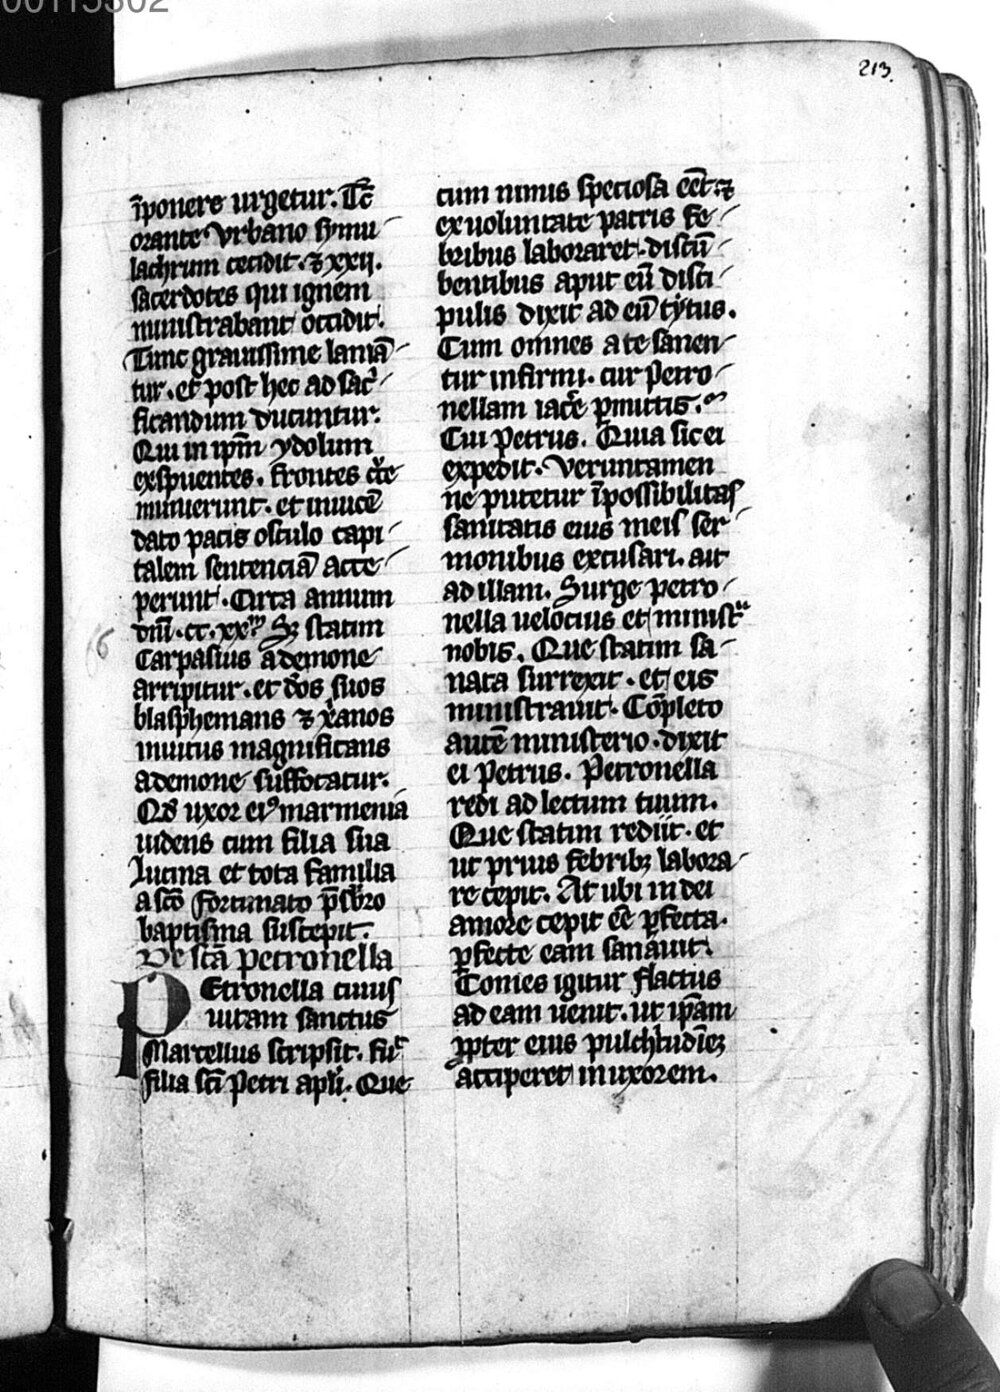 00115302
213.
īponere urgetur. Tc̄
orante Vrbano symu
lachrum cecidit. ⁊ xxij.
sacerdotes qui ignem
ministrabant occidit.
Tunc grauissime laniā
tur. et post hec ad sac͛
ficandum ducuntur.
Qui in ip̄m ydolum
exspuentes. frontes c͛ce
muniuerunt. et inuicē
dato pacis osculo capi
talem sentenciā acce
perunt. Circa annum
dn̄i. cc. xx. Sꝫ statim
Carpasius a demone
arripitur. et deos suos
blasphemans ⁊ xp̄ianos
inuitus magnificans
a demone suffocatur.
Qd̄ uxor eiꝰ marmenia
uidens cum filia sua
Lucina et tota familia
a sc̄o fortunato p̄sbr̄o
baptisma suscepit.
De sc̄a petronella
PEtronella cuius
uitam sanctus
Marcellus scripsit. fu͛
filia sc̄i Petri apl̄i. Que
cum nimis speciosa eēt. ⁊
ex uoluntate patris fe
bribus laboraret. discū
bentibus aput eū disci
pulis dixit ad eū tytus.
Cum omnes a te sanen
tur infirmi. cur Petro
nellam iac͛e ꝑmittis.
Cui Petrus. Quia sic ei
expedit. Veruntamen
ne putetur īpossibilitas
sanitatis eius meis ser
monibus excusari. ait
ad illam. Surge petro
nella uelocius et minist͛
nobis. Que statim sa
nata surrexit. et eis
ministrauit. Cōpleto
autē ministerio. dixit
ei Petrus. Petronella
redi ad lectum tuum.
Que statim rediit. et
ut prius febribꝫ labora
re cepit. At ubi in dei
amore cepit eē ꝑfecta.
ꝑfecte eam sanauit.
Comes igitur flactus
ad eam uenit. ut ip̄am
ꝓpter eius pulch͛tudinē
acciperet in uxorem.